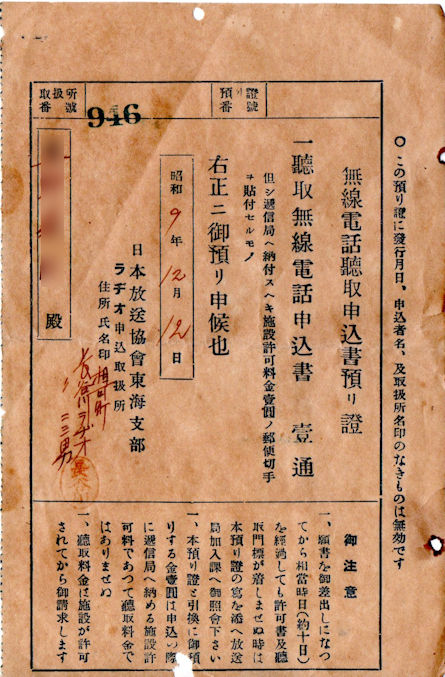 取扱所
番號
946
預り證
番號
〇この預り證に發行月日、申込者名、及取扱所名印のなきものは無効です
無線電話聽取申込書預り證
一聽取無線電話申込書 壹通
但シ遞信局ヘ納付スヘキ施設許可料金壹圓ノ郵便切手
ヲ貼付セルモノ
右正ニ御預リ申候也
昭和9年12月12日
日本放送協會東海支部
ラヂオ申込取扱所
住所氏名印
長谷川ラヂオ
殿
御注意
一、願書を御差出しになつ
てから相當時日(約十日)
を經過しても許可書及聽
取門標が着しませぬ時は
本預り證の寫を添へ放送
局加入課へ御照會下さい
一、本預り證と引換に御預
りする金壹圓は申込の際
に遞信局へ納める施設許
可料であつて聽取料金で
はありませぬ
一、聽取料金は施設が許可
されてから御請求します